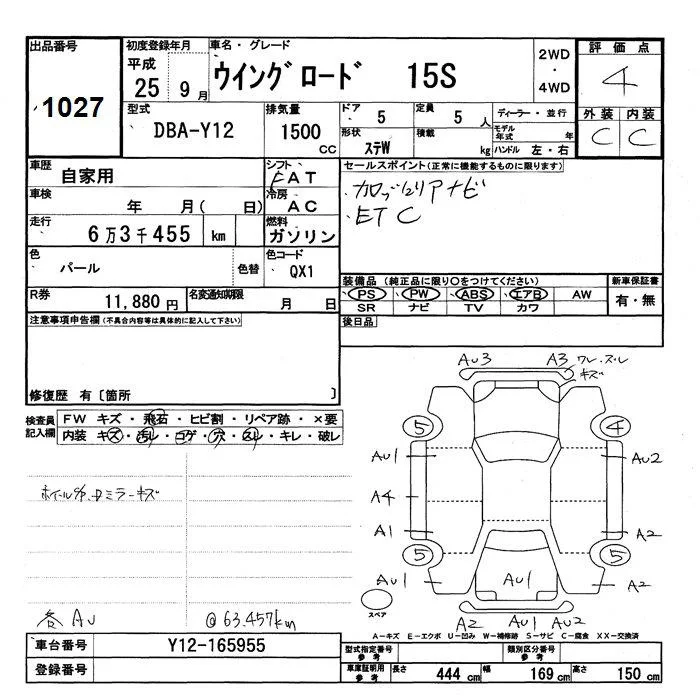 出品番号
1027
初度登録年月
平成
25 9月
車名・グレード
ウイングロード 15S
2WD
・
4WD
評価点
4
外装 内装
C C
型式
DBA-Y12
排気量
1500 CC
ドア 5
定員 5人
形状 ステW
積載 kg
ディーラー・並行
モデル年式 年
ハンドル 左・右
車歴 自家用
シフト FAT
車検 年 月( 日)
冷房 AC
走行 6万3千455 km
燃料 ガソリン
色 パール 色替
色コード QX1
R券 11,880円
名変通知期限 月 日
セールスポイント(正常に機能するものに限ります)
ナビ
ETC
装備品 (純正品に限り○をつけてください)
PS PW ABS エアB AW
SR ナビ TV カワ
新車保証書
有・無
後日品
注意事項申告欄(不具合内容等は具体的に記入して下さい)
修復歴 有〔箇所 〕
検査員記入欄
FW キズ・飛石・ヒビ割・リペア跡・×要
内装 キズ・汚レ・コゲ・穴・スレ・キレ・破レ
ミラーキズ
各AU
@63.457km
AU3 A3 ワレ.ズレ
キズ
5 4
AU1 AU2
A4
A1 A2
5 5
AU1 AU1 A2
スペア
A2 AU1 AU2
A−キズ E−エクボ U−凹み W−補修跡 S−サビ C−腐食 XX−交換済
車台番号 Y12-165955
登録番号
型式指定番号 参考
類別区分番号 参考
車庫証明用 参考
長さ 444 cm 幅 169 cm 高さ 150 cm